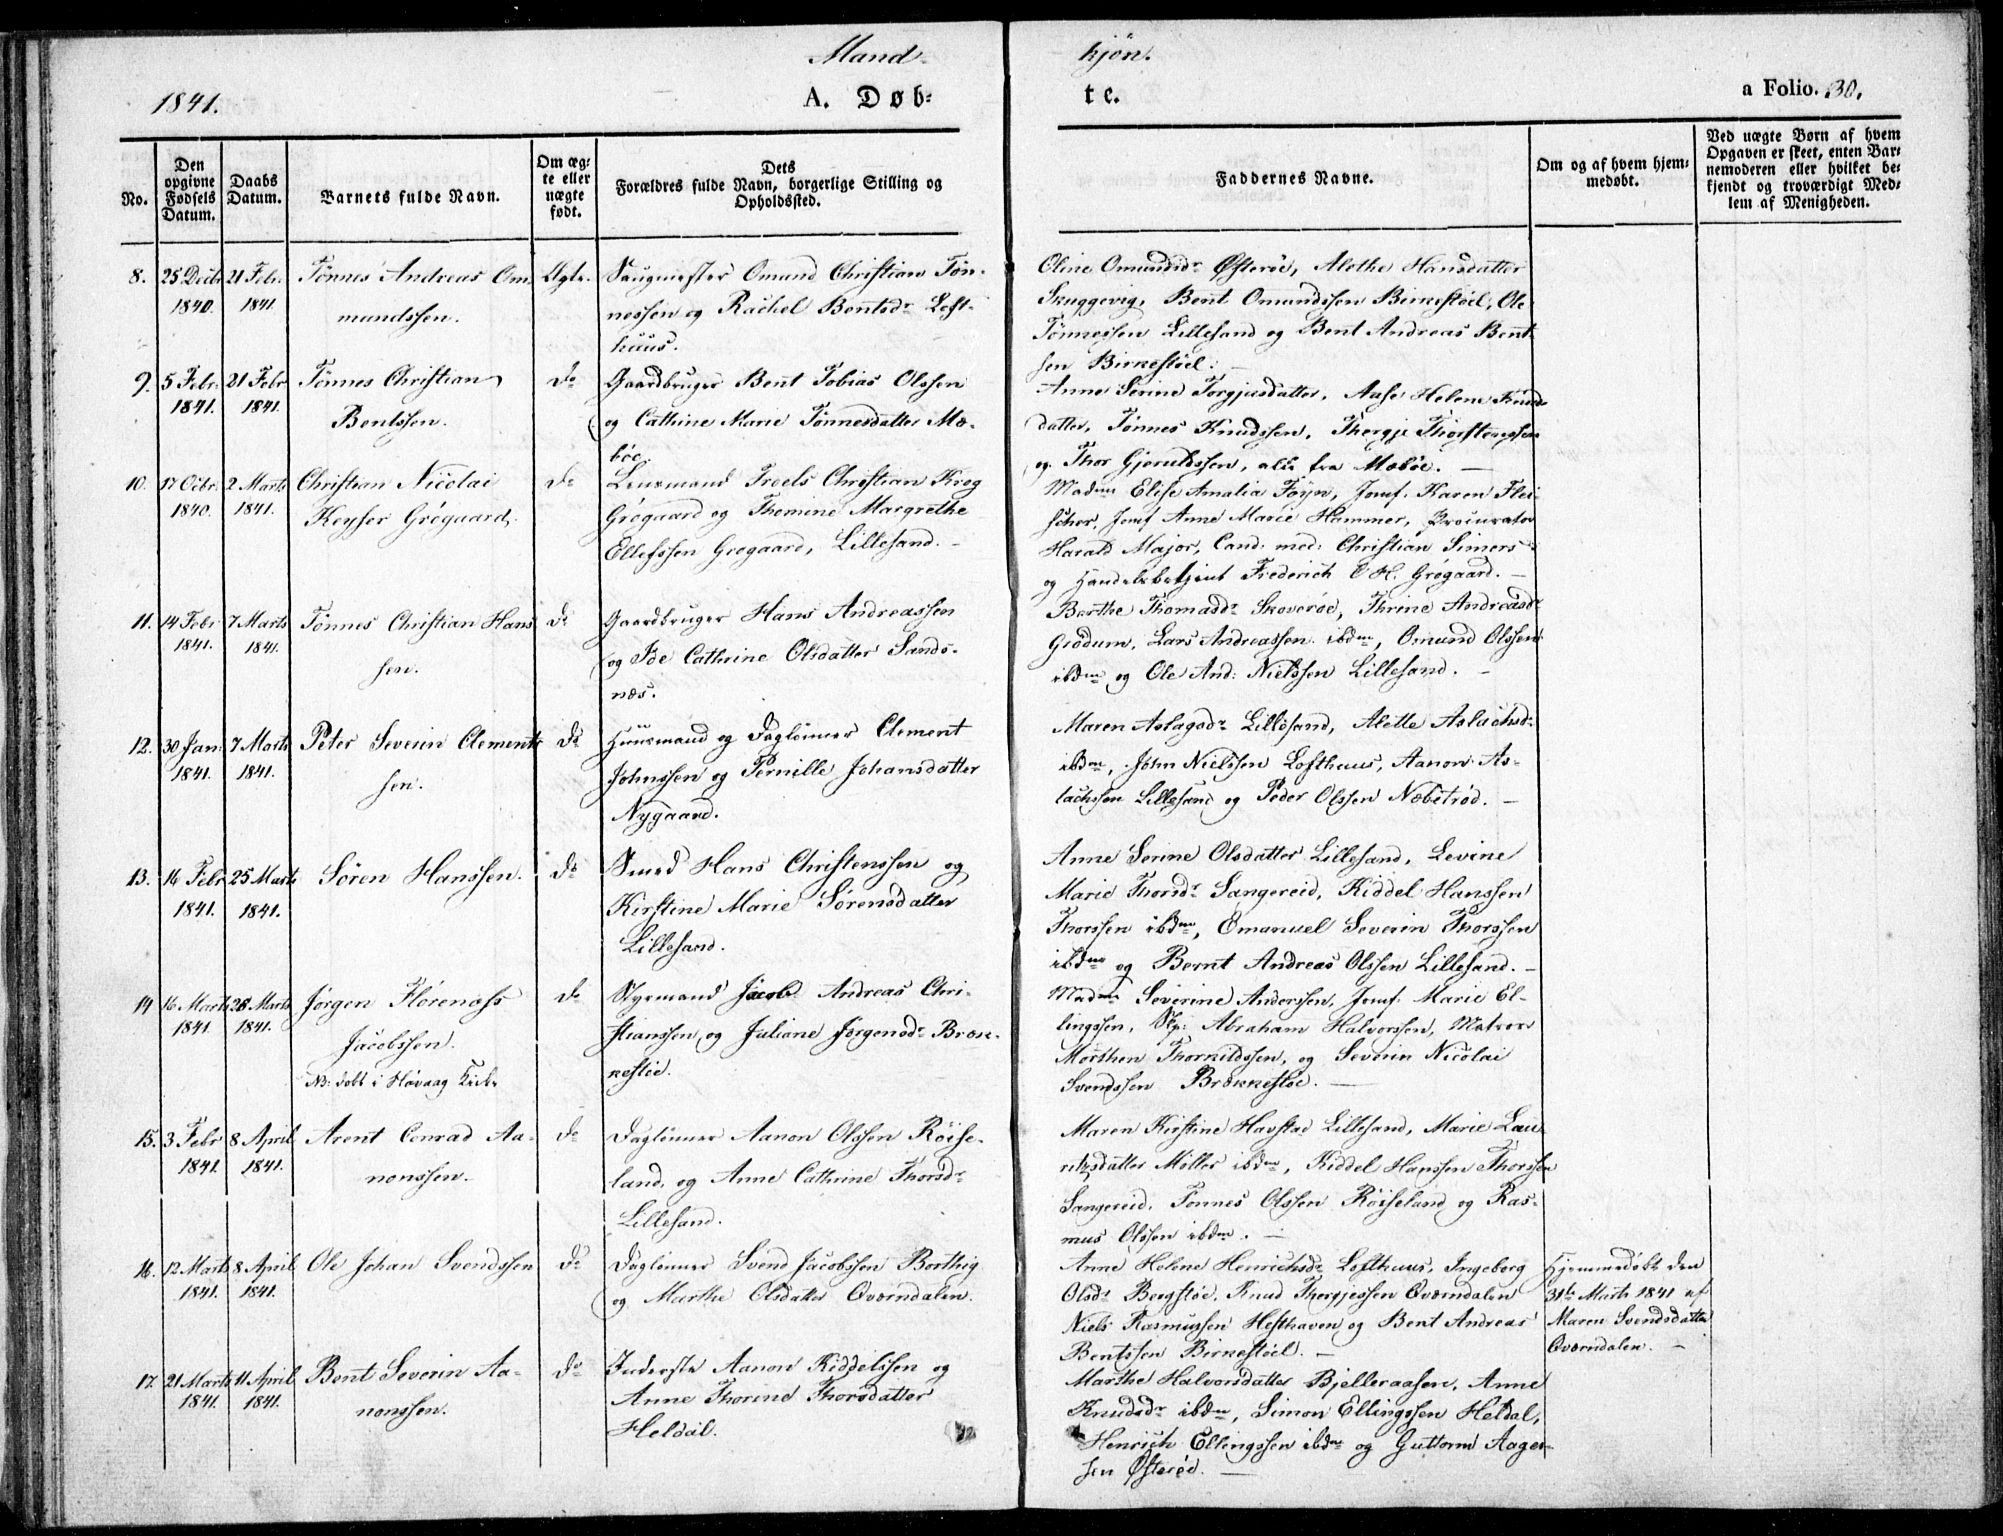 Mand-
kjön.
1841.
A. Døb-
te.
a Folio. 30.
No.
Den opgivne Fødsels Datum.
Daabs Datum.
Barnets fulde Navn.
Om æg-
te eller
uægte
født.
Dets
Forældres fulde Navn, borgerlige Stilling og
Opholdssted.
Faddernes Navne.
Om og af hvem hjem-
medøbt.
Ved uægte Børn af hvem
Opgaven er skeet, enten Bar-
nemoderen eller hvilket be-
kjendt og troværdigt Med-
lem af Menigheden.
8. 25 Decbr 1840. 21 Febr. 1841.
Tønnes Andreas Om-
mundssen.
Ægte.
Saugmester Omund Christian Tön-
nessen og Rachel Bentsdr Loft-
huus.
Oline Omundsdr Østeröe, Alethe Hansdatter
Skuggevig, Bent Omundssen Birkestöel, Ole
Tönnessen Lillesand og Bent Andreas Bent-
sen Birkestöel.
9. 5 Febr. 1841. 21 Febr 1841.
Tönnes Christian
Bentssen.
Do
Gaardbruger Bent Tobias Olssen
og Cathrine Marie Tönnesdatter Mæ-
böe.
Anne Serine Torgjusdatter, Aase Helene Knuds-
datter, Tönnes Knudssen, Thergje Thorstenssen
og Thor Gjeruldssen, alle fra Mæböe. —
10. 17 Octbr. 1840. 2 Marts 1841.
Christian Nicolai
Keyser Grögaard.
Do
Lensmand Troels Christian Krog
Grögaard og Thomine Margrethe
Ellefssen Grögaard, Lillesand. —
Madme Elise Amalia Föyn, Jomf. Karen Flei-
scher, Jomf Anne Marie Hammer, Procurator
Harald Major, Cand: med: Christian Simers
og Handelsbetjent Frederich C H. Grögaard. —
11. 14 Febr 1841. 7 Marts 1841.
Tönnes Christian Hans
sen.
Do
Gaardbruger Hans Andreassen
og Ide Cathrine Olsdatter Sands-
næs.
Berthe Thomasdr Skoveröe, Thrine Andreasdr
Grödum, Lars Andreassen ibdm, Omund Olssen
ibdm og Ole And: Nielssen Lillesand. —
12. 30 Jan: 1841. 7 Marts 1841.
Peter Severin Clements
sen.
Do
Huusmand og Daglönner Clement
Johnssen og Pernille Johansdatter
Nygaard.
Maren Aslagsdr Lillesand, Alette Aslachsdr
ibdm, John Nielssen Lofthuus, Aanon As-
lachssen Lillesand og Peder Olssen Næbetröd. —
13. 16 Febr 1841. 25 Marts 1841.
Sören Hanssen.
Do
Smed Hans Christenssen og
Kirstine Marie Sörensdatter
Lillesand.
Anne Serine Olsdatter Lillesand, Levine
Marie Thorsdr Sangereid, Kiddel Hanssen
Thorssen ibdm, Emanuel Severin Thorssen
ibdm og Bernt Andreas Olssen Lillesand. —
14 16 Marts 1841. 28 Marts 1841.
Jörgen Hörenæss
Jacobssen.
NB: döbt i Höivaag Kirke
Do
Styrmand Jacob Andreas Chri-
stianssen og Juliane Jörgensdr Bræk-
kestöe.
Madme Severine Anderssen, Jomf. Marie El-
lingssen, Skp: Abraham Halvorssen, Matros
Morthen Thorkildssen, og Severin Nicolai
Svendssen Brækkestöe. —
15. 3 Febr 1841. 8 April 1841.
Arent Conrad Aa-
nonssen.
Do
Daglönner Aanon Olssen Röise-
land, og Anne Cathrine Thorsdr
Lillesand.
Maren Kirstine Havstad Lillesand, Marie Lau-
ritzdatter Möller ibdm, Kiddel Hanssen Thorssen
Sangereid, Tönnes Olssen Röiseland og Ras-
mus Olssen ibdm. —
16. 12 Marts 1841. 8 April 1841.
Ole Johan Svendssen
Do
Daglönner Svend Jacobssen Borthig
og Marthe Olsdatter Qværndalen.
Anne Helene Henrichsdr Lofthuus, Ingeborg
Olsdr Bergstöe, Knud Thergjessen Qværndalen
Niels Rasmussen Hesthaven og Bent Andreas
Bentssen Birkestöel. —
Hjemmedöbt den
31te Marts 1841 af
Maren Svendsdatter
Qværndalen. —
17. 21 Marts 1841. 11 April 1841.
Bent Severin Aa-
nonssen.
Do
Inderste Aanon Kiddelssen og
Anne Thorine Thorsdatter
Heldal.
Marthe Halvorsdatter Bjelleraasen, Anne
Knudsdr ibdm, Simon Ellingssen Heldal,
Henrich Ellingssen ibdm og Guttorm Aager-
sen Österöe. —